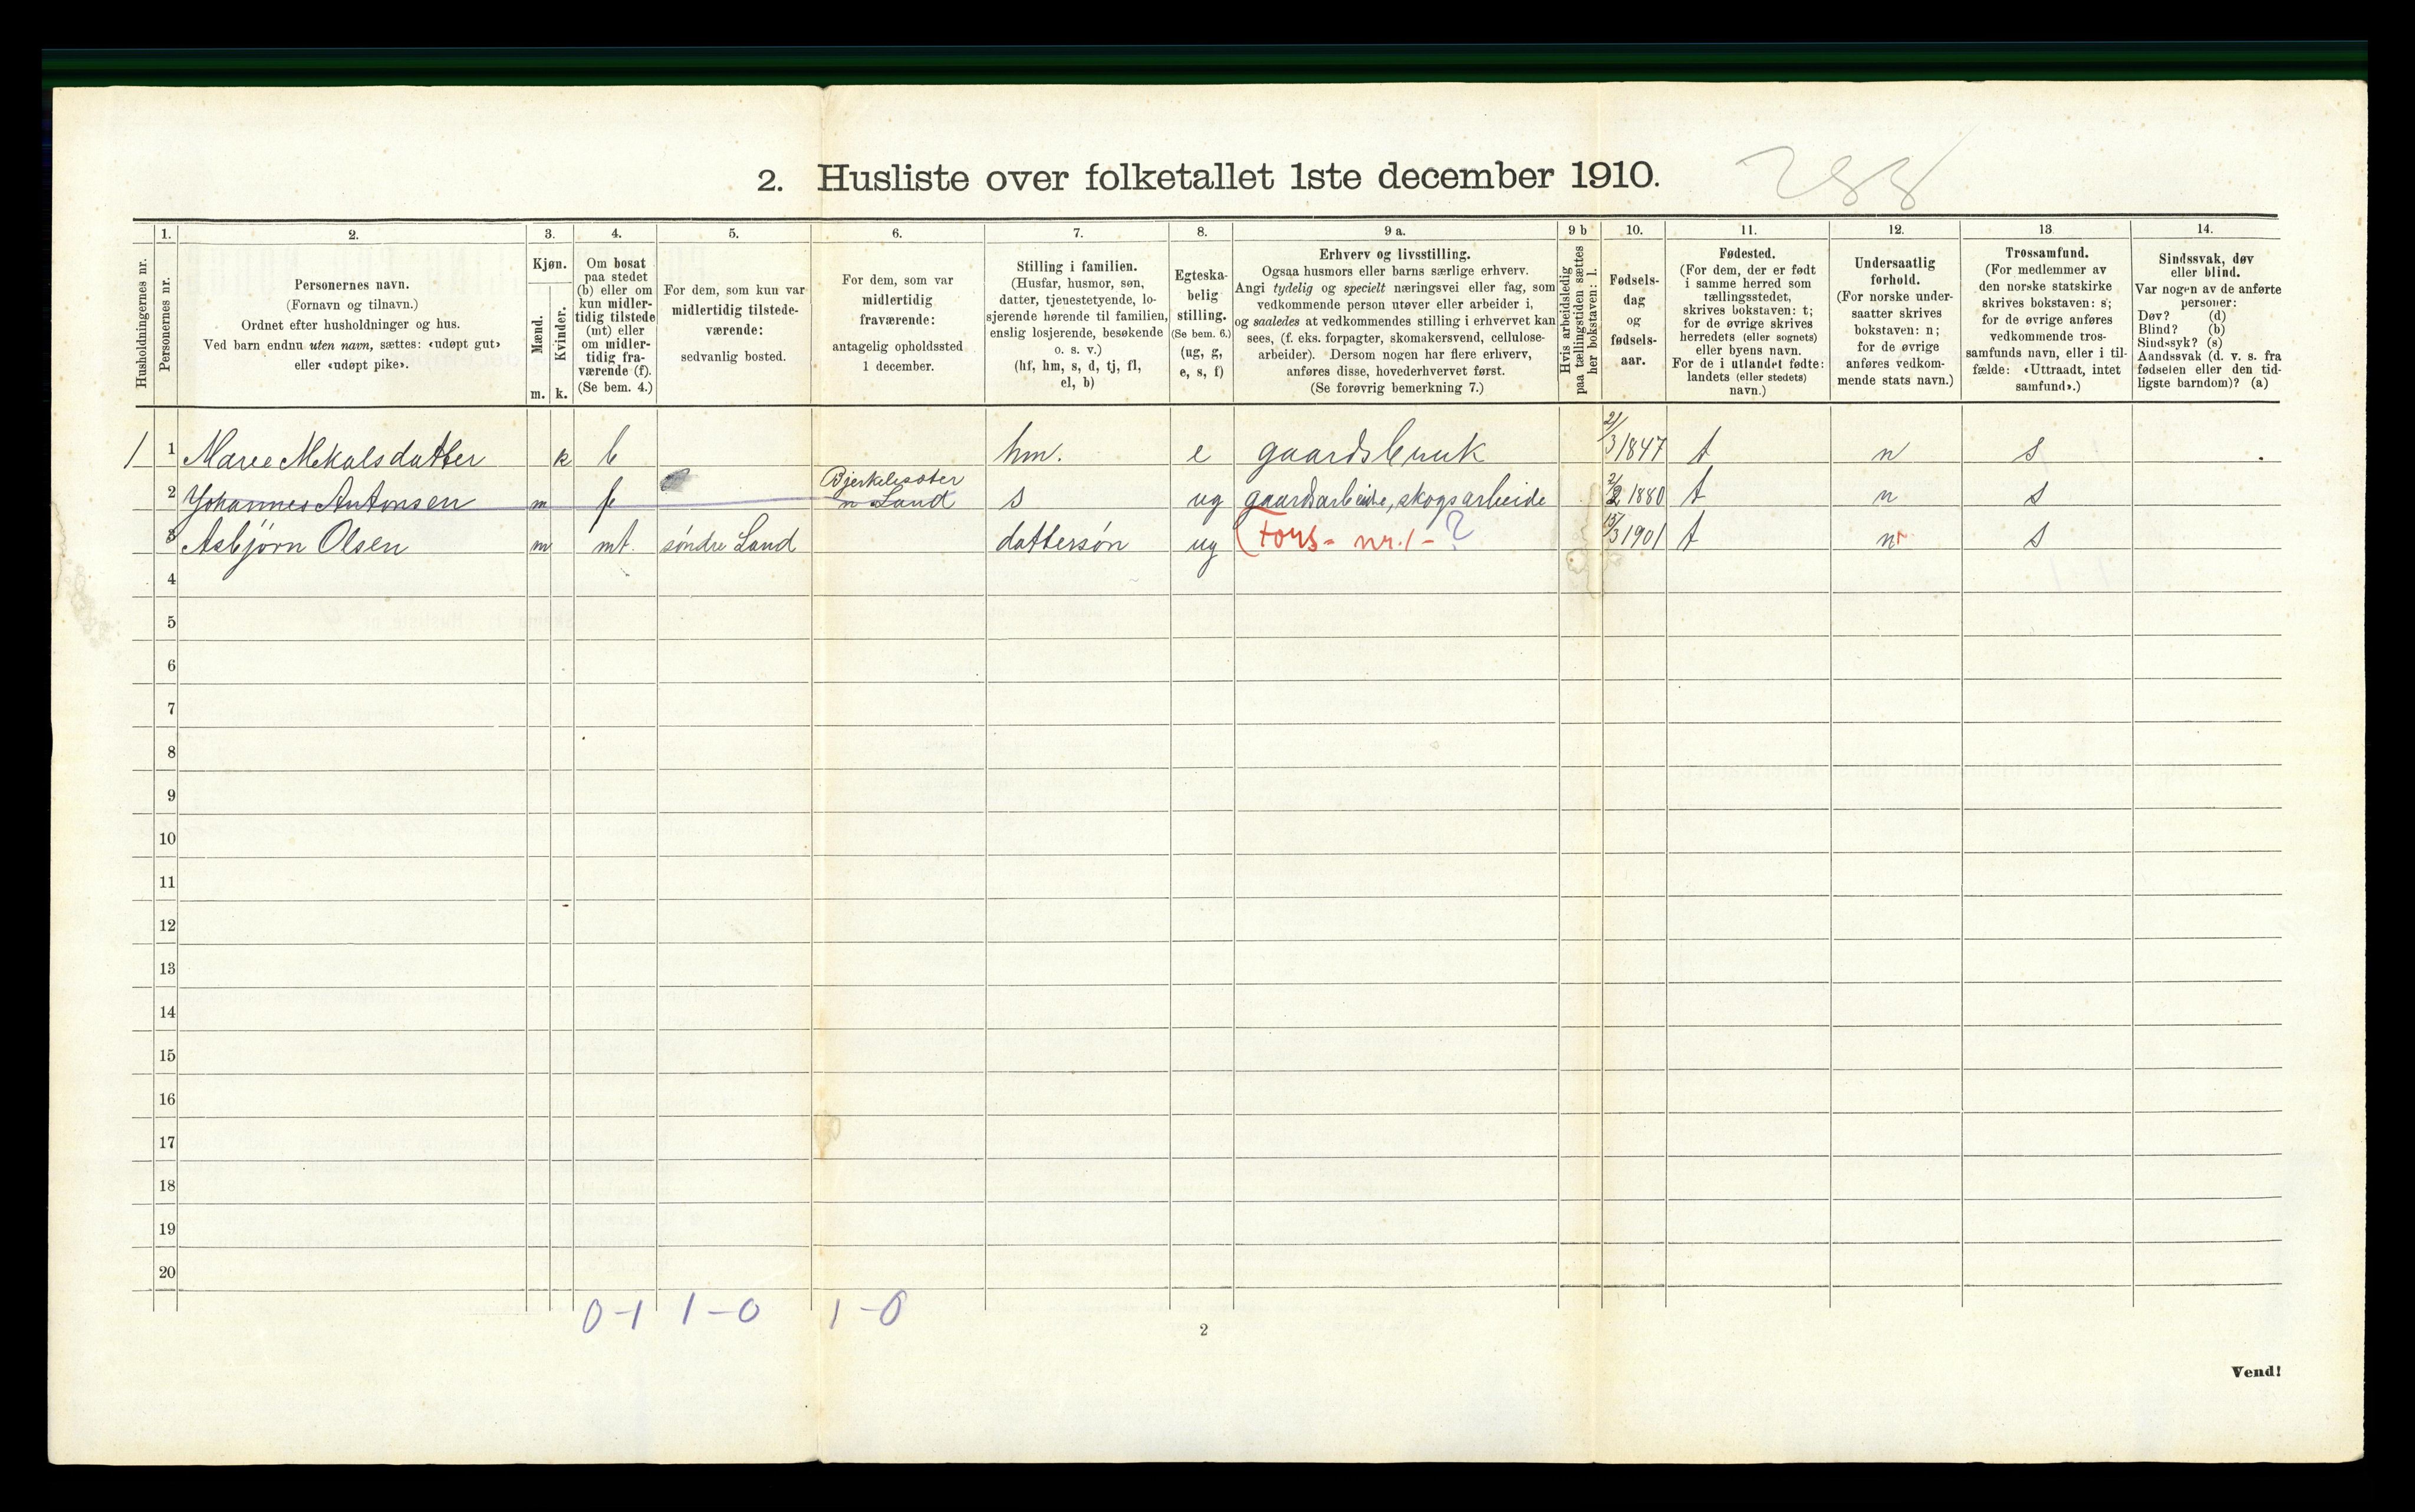 2. Husliste over folketallet 1ste december 1910. 288
1. 2. 3. 4. 5. 6. 7. 8. 9 a. 9 b 10. 11. 12. 13 14.
Husholdningernes nr.
Personernes nr.
Personernes navn.
(Fornavn og tilnavn.)
Ordnet efter husholdninger og hus.
Ved barn endnu uten navn, sættes: «udøpt gut»
eller «udøpt pike».
Kjøn.
Mænd.
Kvinder.
m. k.
Om bosat
paa stedet
(b) eller om
kun midler-
tidig tilstede
(mt) eller
om midler-
tidig fra-
værende (f).
(Se bem. 4.)
For dem, som kun var
midlertidig tilstede-
værende:
sedvanlig bosted.
For dem, som var
midlertidig
fraværende:
antagelig opholdssted
1 december.
Stilling i familien.
(Husfar, husmor, søn,
datter, tjenestetyende, lo-
sjerende hørende til familien,
enslig losjerende, besøkende
o. s. v.)
(hf, hm, s, d, tj, fl,
el, b)
Egteska-
belig
stilling.
(Se bem. 6.)
(ug, g,
e, s, f)
Erhverv og livsstilling.
Ogsaa husmors eller barns særlige erhverv.
Angi tydelig og specielt næringsvei eller fag, som
vedkommende person utøver eller arbeider i,
og saaledes at vedkommendes stilling i erhvervet kan
sees, (f. eks. forpagter, skomakersvend, cellulose-
arbeider). Dersom nogen har flere erhverv,
anføres disse, hovederhvervet først.
(Se forøvrig bemerkning 7.)
Hvis arbeidsledig
paa tællingstiden sættes
her bokstaven: l.
Fødsels-
dag
og
fødsels-
aar.
Fødested.
(For dem, der er født
i samme herred som
tællingsstedet,
skrives bokstaven: t;
for de øvrige skrives
herredets (eller sognets)
eller byens navn.
For de i utlandet fødte:
landets (eller stedets)
navn.)
Undersaatlig
forhold.
(For norske under-
saatter skrives
bokstaven: n;
for de øvrige
anføres vedkom-
mende stats navn.)
Trossamfund.
(For medlemmer av
den norske statskirke
skrives bokstaven: s;
for de øvrige anføres
vedkommende tros-
samfunds navn, eller i til-
fælde: «Uttraadt, intet
samfund».)
Sindssvak, døv
eller blind.
Var nogen av de anførte
personer:
Døv? (d)
Blind? (b)
Sindssyk? (s)
Aandssvak (d. v. s. fra
fødselen eller den tid-
ligste barndom)? (a)
1 1 Maree Mekalsdatter k b hm. e gaardsbruuk 21/3 1847 t n s
2 Yohannes Antonsen m f Bjerkelisæter n Land s ug gaardsarbeide, skogsarbeide 2/2 1880 t n s
3 Asbjørn Olsen m mt. søndre Land dattersøn ug (Fors- nr. 1 - ? 15/3 1901 t n s
4
5
6
7
8
9
10
11
12
13
14
15
16
17
18
19
20
0-1 1-0 1-0
2
Vend!